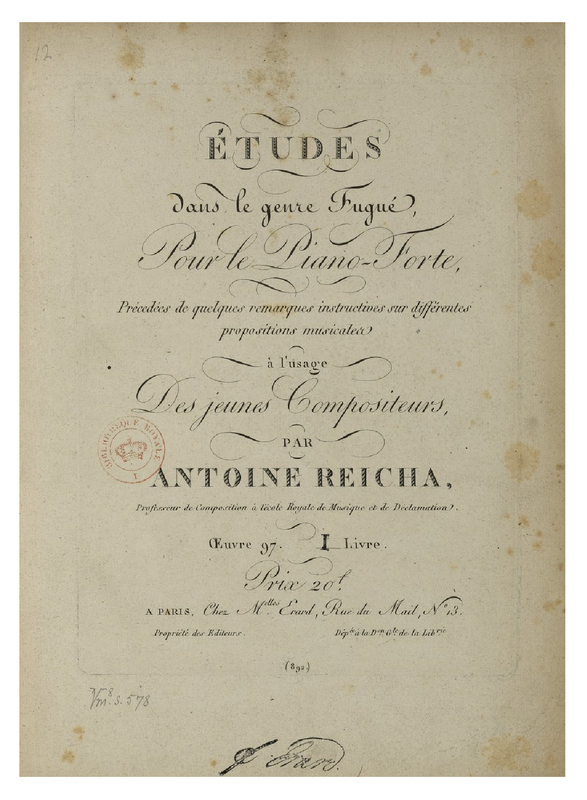 12
ÉTUDES
dans le genre Fugué,
Pour le Piano-Forte,
Précedées de quelques remarques instructives sur différentes
propositions musicales
à l'usage
Des jeunes Compositeurs,
PAR
BIBLIOTHEQUE ROYALE
ANTOINE REICHA,
Professeur de Composition à l'école Royale de Musique et de Déclamation.
Œuvre 97. I Livre.
Prix 20f.
A PARIS, Chez Melles Erard, Rue du Mail, No 13.
Propriété des Editeurs. Dépée à la Don Gle de la Libie
(892)
Vm8. s. 578
Erard.